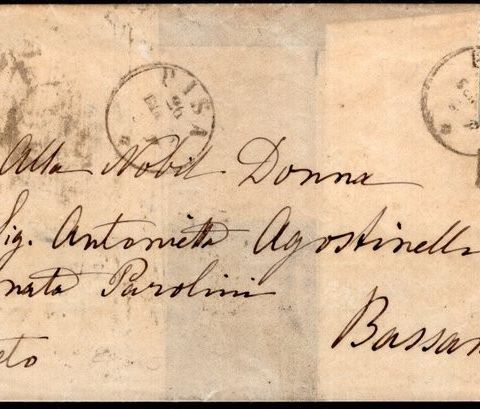 PISA
26
Alla Nobil Donna
Sig. Antonietta Agostinelli
nata Parolini
Bassan
eto